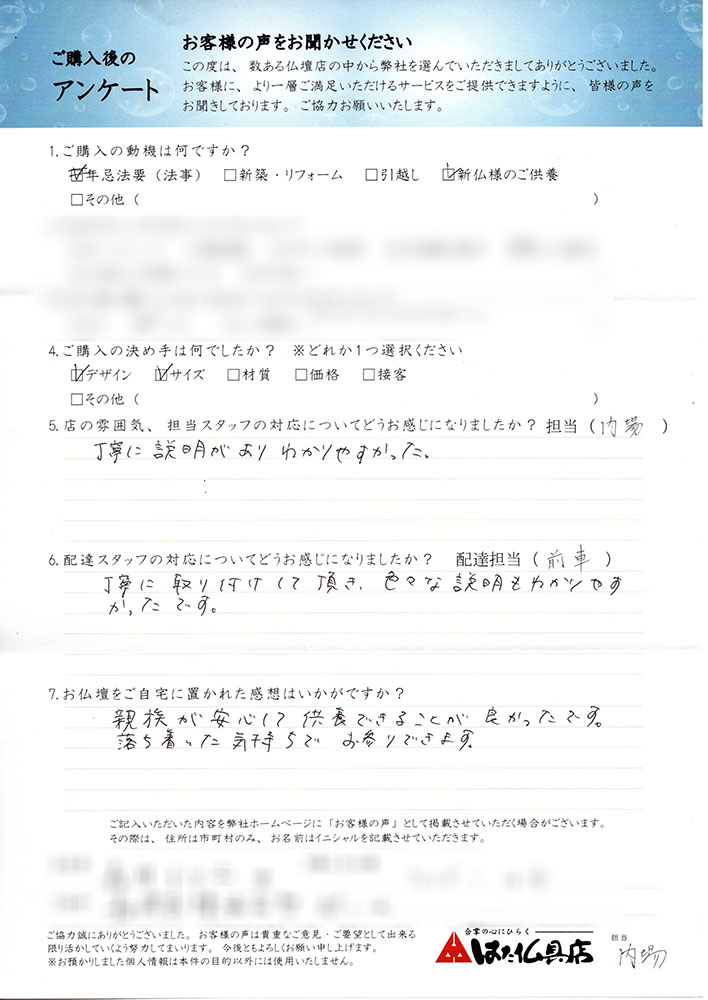 ご購入後の
アンケート
お客様の声をお聞かせください
この度は、数ある仏壇店の中から弊社を選んでいただきましてありがとうございました。
お客様に、より一層ご満足いただけるサービスをご提供できますように、皆様の声を
お聞きしております。ご協力お願いいたします。
1.ご購入の動機は何ですか？
☑年忌法要（法事） □新築・リフォーム □引越し ☑新仏様のご供養
□その他（ ）
4.ご購入の決め手は何でしたか？ ※どれか1つ選択ください
☑デザイン ☑サイズ □材質 □価格 □接客
□その他（ ）
5.店の雰囲気、担当スタッフの対応についてどうお感じになりましたか？ 担当（内場）
丁寧に説明がありわかりやすかった。
6.配達スタッフの対応についてどうお感じになりましたか？ 配達担当（前車）
丁寧に取り付けして頂き、色々な説明もわかりやす
かったです。
7.お仏壇をご自宅に置かれた感想はいかがですか？
親族が安心して供養できることが良かったです。
落ち着いた気持ちでお参りできます。
ご記入いただいた内容を弊社ホームページに「お客様の声」として掲載させていただく場合がございます。
その際は、住所は市町村のみ、お名前はイニシャルを記載させていただきます。
ご協力誠にありがとうございました。お客様の声は貴重なご意見・ご要望として出来る
限り活かしていくよう努力してまいります。今後ともよろしくお願い申し上げます。
※お預かりしました個人情報は本件の目的以外には使用いたしません。
合掌の心にひらく
はた仏具店
担当
内場